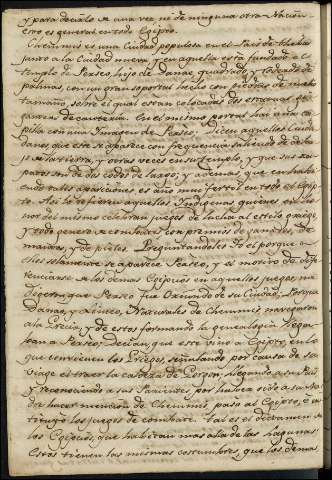 y para decirlo de una vez ni de ninguna otra Nacion
esto es general en todo Egipto.
Chemmis es una Ciudad populosa en el Pais de Thebas
junto a la Ciudad nueva, y en aquella está fundado el
templo de Perseo, hijo de Danae, quadrado, y rodeado de
palmas, con un gran soportal hecho con piedras de mucho
tamaño, sobre el qual estan colocadas dos estatuas
de cantería. En el mismo portal hai una ca
pilla con una Imagen de Perseo. Dicen aquellos Ciuda
danos que este se aparece con frequencia saliendo de deba
jo de la tierra, y otras veces en su templo, y que sus za
patos son de dos codos de largo; y ademas que en habi
endo tales apariciones es año mui fertil en todo el Egip
to. Asi lo refieren aquellos Indigenas quienes en ho
nor del mismo celebran juegos de lucha al estilo griego,
y todo genero de combates con premios de ganados, de
mantos, y de pieles. Preguntandoles Yo el porque a
ellos solamente se aparece Perseo, y el motivo de dife
renciarse de los demas Egipcios en aquellos juegos, me
dijeron que Perseo fue Oriundo de su Ciudad, porque
Danao, y Linceo, Naturales de Chemmis, navegaron
a la Grecia, y de estos formando la genealogia llega
ban a Perseo, decian, que este vino a Egipto, en lo
que convienen los Griegos, señalando por causa de su
viage el traer la cabeza de Gorgon, llegando a su Pais
y reconociendo a sus Parientes, por haber oido a su ma
dre hacer mencion de Chemmis, pasó al Egipto, é ins
tituyó los juegos de combate. Tal es el dictamen de
los Egipcios, que habitan mas alla de las lagunas.
Estos tienen las mismas costumbres, que los demas